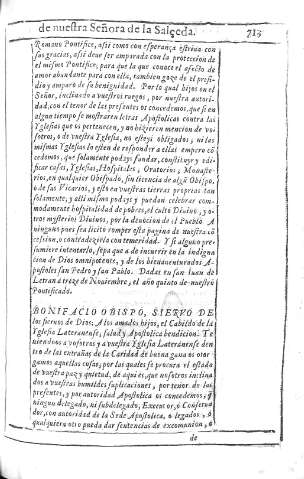 de nuestra Señora de la Salçeda. 713
Romano Pontifice, assi como con esperança estriva con
sus gracias, assi deve ser amparada con la proteccion de
el mismo Pontifice, para la que conoce el afecto de
amor abundante para con ello, tambien goze de el presi-
dio y amparo de su benignidad. Por lo qual hijos en el
Señor, inclinado a vuestros ruegos, por nuestra autori-
dad, con el tenor de las presentes os concedemos, que si en
algun tiempo se mostraren letras Apostolicas contra las
Yglesias que os pertenecen, y no hizieren mencion de vo-
sotros, o de vuestra Yglesia, no esteys obligados, ni las
mismas Yglesias lo esten de responder a ellas: empero cō
cedemos, que solamente podays fundar, constituyr y edi-
ficar casas, Yglesias, Hospitales, Oratorios, Monaste-
rios, en qualquier Obispado, sin licencia de algū Obispo,
o de sus Vicarios, y esto en vuestras tierras proprias tan
solamente, y alli mismo podays y puedan celebrar com-
modamente hospitalidad de pobres, el culto Divino, y o-
tros mysterios Divinos, por la devocion de el Pueblo. A
ningunos pues sea licito romper esta pagina de nuestra cō
cession, o contradezirla con temeridad. Y si alguno pre-
sumiere intentarlo, sepa que a de incurrir en la indigna-
cion de Dios omnipotente, y de los bienaventurados A-
postoles san Pedro y san Pablo. Dadas en san Iuan de
Letran a treze de Noviembre, el año quinto de nuestro
Pontificado.
BONIFACIO OBISPO, SIERVO DE
los siervos de Dios, A los amados hijos, el Cabildo de la
Yglesia Lateranense, salud y Apostolica bendicion. Te
niendoos a vosotros y a vuestra Yglesia Lateranense den-
tro de las entrañas de la Caridad de buena gana os otor
gamos aquellas cosas, por las quales se procura el estado
de vuestra paz y quietud, de aqui es, que nosotros inclina
dos a vuestras humildes suplicaciones, por tenor de las
presentes, y por autoridad Apostolica os concedemos, q̄
ningun delegado, ni subdelegado, Executor, o Conserva-
dor, con autoridad de la Sede Apostolica, o legados, o
qualquiera otro pueda dar sentencias de excomunion, o
de